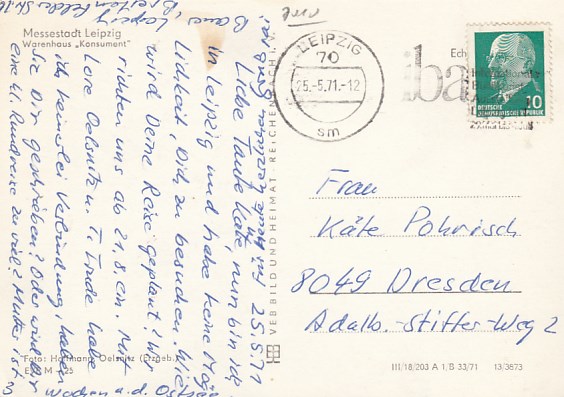 Messestadt Leipzig
Warenhaus „Konsument"
LEIPZIG
70
25.-5.71.-12
sm
10
DEUTSCHE
DEMOKRATISCHE REPUBLIK
Bauer, Leipzig
25.5.71
Liebe Tante Käte, nun bin ich
in Leipzig und habe keine Mög-
lichkeit, Dich zu besuchen. Wie
wird Deine Reise geplant? Wir
richten uns ab 21.8. ein. Mit
Lore Oelsnitz u. T. Trude habe
ich keinerlei Verbindung, haben
Sie Dir geschrieben? Oder wird Dir
eine kl. Rundreise zu viel? Mutter ist
3 Wochen a. d.
VEB BILD UND HEIMAT · REICHENBACH I. V.
Frau
Käte Pohrisch
8049 Dresden
Adalb.-Stifter-Weg 2
Foto: Hoffmann, Oelsnitz (Erzgeb.)
III/18/203 A 1/B 33/71 13/3673